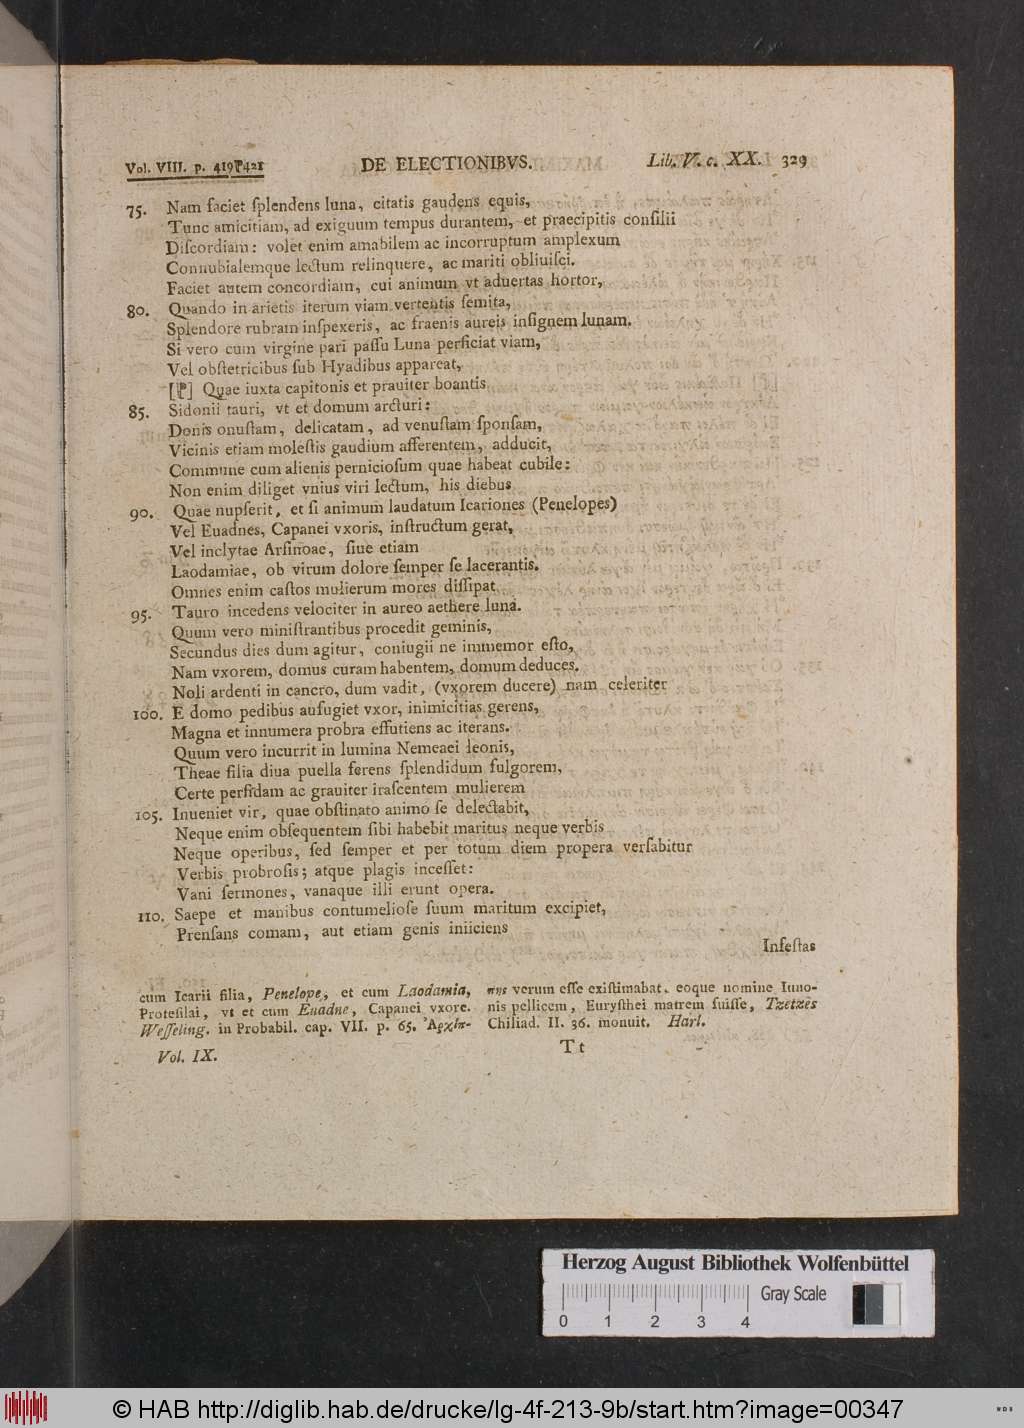 Vol. VIII. p. 419 421 DE ELECTIONIBVS. Lib. V. c. XX. 329
75. Nam faciet ſplendens luna, citatis gaudens equis,
Tunc amicitiam, ad exiguum tempus durantem, et praecipitis conſilii
Diſcordiam: volet enim amabilem ac incorruptum amplexum
Connubialemque lectum relinquere, ac mariti obliuiſci.
Faciet autem concordiam, cui animum vt aduertas hortor,
80. Quando in arietis iterum viam vertentis ſemita,
Splendore rubram inſpexeris, ac fraenis aureis inſignem lunam.
Si vero cum virgine pari paſſu Luna perficiat viam,
Vel obſtetricibus ſub Hyadibus appareat,
[ ] Quae iuxta capitonis et prauiter boantis
85. Sidonii tauri, vt et domum arcturi:
Donis onuſtam, delicatam, ad venuſtam ſponſam,
Vicinis etiam moleſtis gaudium afferentem, adducit,
Commune cum alienis pernicioſum quae habeat cubile:
Non enim diliget vnius viri lectum, his diebus
90. Quae nupſerit, et ſi animum laudatum Icariones (Penelopes)
Vel Euadnes, Capanei vxoris, inſtructum gerat,
Vel inclytae Arſinoae, ſiue etiam
Laodamiae, ob virum dolore ſemper ſe lacerantis.
Omnes enim caſtos mulierum mores diſſipat
95. Tauro incedens velociter in aureo aethere luna.
Quum vero miniſtrantibus procedit geminis,
Secundus dies dum agitur, coniugii ne immemor eſto,
Nam vxorem, domus curam habentem, domum deduces.
Noli ardenti in cancro, dum vadit, (vxorem ducere) nam celeriter
100. E domo pedibus aufugiet vxor, inimicitias gerens,
Magna et innumera probra effutiens ac iterans.
Quum vero incurrit in lumina Nemeaei leonis,
Theae filia diua puella ferens ſplendidum fulgorem,
Certe perfidam ac grauiter iraſcentem mulierem
105. Inueniet vir, quae obſtinato animo ſe delectabit,
Neque enim obſequentem ſibi habebit maritus neque verbis
Neque operibus, ſed ſemper et per totum diem propera verſabitur
Verbis probroſis; atque plagis inceſſet:
Vani ſermones, vanaque illi erunt opera.
110. Saepe et manibus contumelioſe ſuum maritum excipiet,
Prenſans comam, aut etiam genis iniiciens
Infeſtas
cum Icarii filia, Penelope, et cum Laodamia,
Proteſilai, vt et cum Euadne, Capanei vxore.
Weſſeling. in Probabil. cap. VII. p. 65. Ἀρχίπ-
πης verum eſſe exiſtimabat, eoque nomine Iuno-
nis pellicem, Euryſthei matrem fuiſſe, Tzetzes
Chiliad. II. 36. monuit. Harl.
Vol. IX. T t
Herzog August Bibliothek Wolfenbüttel
Gray Scale
0 1 2 3 4
© HAB http://diglib.hab.de/drucke/lg-4f-213-9b/start.htm?image=00347